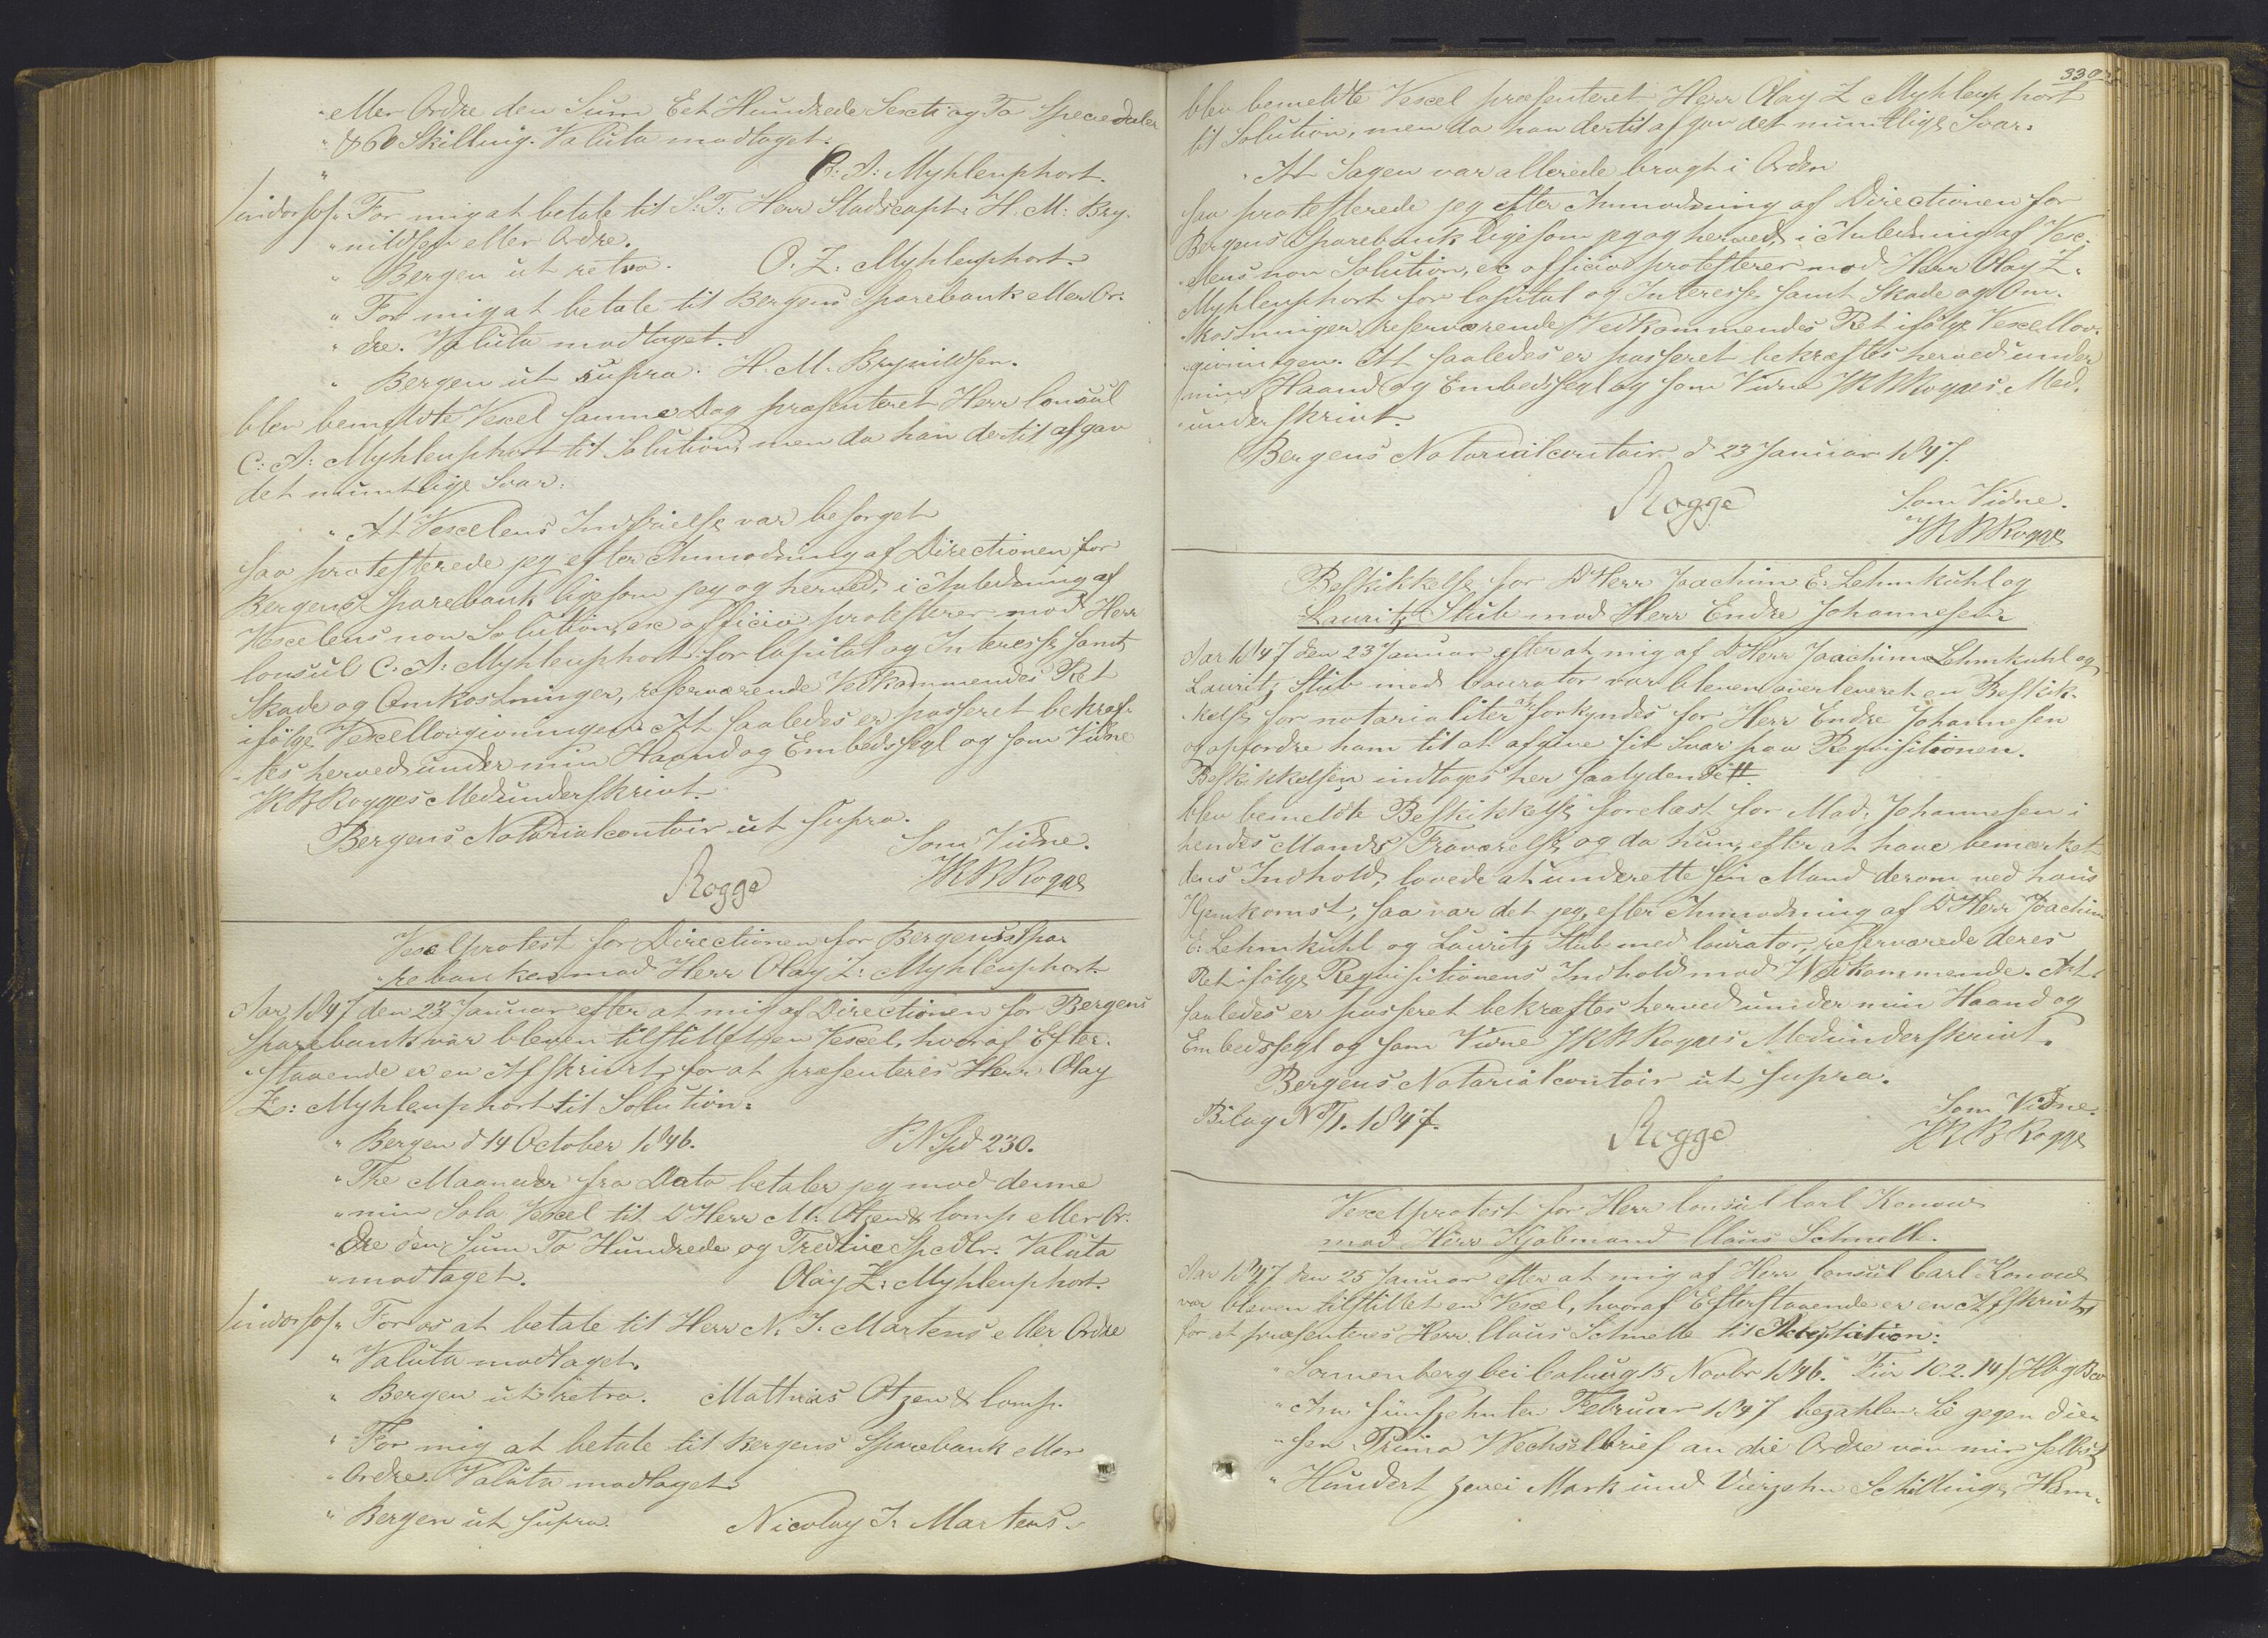 "eller Ordre den Sum Eet Hundrede Sexti og To Speciedaler
" & 60 Skilling. Valuta modtaget.
" C: A: Myhlenphort.
/indorsos/ " For mig at betale til S: T: Herr Stadscapt: H. M: Bry-
" nildsen eller Ordre.
" Bergen ut retro. O. Z: Myhlenphort.
" For mig at betale til Bergens Sparebank eller Or-
" dre. Valuta modtaget.
" Bergen ut supra. H. M. Brynildsen.
blev bemeldte Vexel samme Dag præsenteret Herr Consul
C: A: Myhlenphort til Solution, men da han dertil afgav
det mundtlige Svar:
" At Vexelens Indfrielse var besørget
saa protesterede jeg efter Anmodning af Directionen for
Bergens Sparebank ligesom jeg og herved, i Anledning af
Vexelens non Solution, ex officio protesterer mod Herr
Consul C: A: Myhlenphort for Capital og Interesse samt
Skade og Omkostninger, reserverende Vedkommendes Ret
ifølge Vexellovgivningen. At saaledes er passeret bekræf-
tes herved under min Haand og Embedssegl og som Vidne
JKB Rogges Medunderskrivt.
Bergens Notarialcontoir ut supra.
Som Vidne.
Rogge JKB Rogge
Vexelprotest for Directionen for Bergens Spa-
rebanken mod Herr Olay Z: Myhlenphort
Aar 1847 den 23 Januar efter at mig af Directionen for Bergens
Sparebank var bleven tilstillet en Vexel, hvoraf Efter-
staaende er en Afskrivt, for at præsenteres Herr Olay
Z: Myhlenphort til Solution:
" Bergen d 14 October 1846. PN Spd 230.
" Tre Maaneder fra Dato betaler jeg mod denne
" min Sola Vexel til D'Herr M: Otzen & Comp eller Or-
" dre den Sum To Hundrede og Tredive Spdlr. Valuta
" modtaget. Olay Z: Myhlenphort.
/indorsos/ " For os at betale til Herr N. J. Martens eller Ordre
" Valuta modtaget.
" Bergen ut retro. Mathias Otzen & Comp.
" For mig at betale til Bergens Sparebank eller
" Ordre. Valuta modtaget.
" Bergen ut supra. Nicolay J. Martens.
330
blev bemeldte Vexel præsenteret Herr Olay Z Myhlenphort
til Solution, men da han dertil afgav det mundtlige Svar:
" At Sagen var allerede bragt i Orden
saa protesterede jeg efter Anmodning af Directionen for
Bergens Sparebank ligesom jeg og herved, i Anledning af Vex-
elens non Solution, ex officio protesterer mod Herr Olay Z.
Myhlenphort for Capital og Interesse samt Skade og Om-
kostninger, reserverende Vedkommendes Ret ifølge Vexellov-
givningen. At saaledes er passeret bekræftes herved under
min Haand og Embedssegl og som Vidne JKB Rogges Med-
underskrivt.
Bergens Notarialcontoir d 23 Januar 1847.
Rogge Som Vidne.
JKB Rogge
Beskikkelse for D'Herr Joachim E. Lehmkuhl og
Lauritz Stub mod Herr Endre Johannesen.
Aar 1847 den 23 Januar efter at mig af D'Herr Joachim Lehmkuhl og
Lauritz Stub med Curator var bleven overleveret en Beskik-
kelse for notarialiter at forkyndes for Herr Endre Johannesen
og opfordre ham til at afgive sit Svar paa Requisitionen.
Beskikkelsen indtages her saalydende #
blev bemeldte Beskikkelse forelæst for Mad. Johannesen i
hendes Mands Fraværelse, og da hun, efter at have bemærket
dens Indhold, lovede at underette sin Mand derom ved hans
Hjemkomst, saa var det jeg, efter Anmodning af D'Herr Joachim
E. Lehmkuhl og Lauritz Stub med Curator, reserverede deres
Ret ifølge Requisitionens Indhold mod Vedkommende. At
saaledes er passeret bekræftes herved under min Haand og
Embedssegl og som Vidne JKB Rogges Medunderskrivt.
Bergens Notarialcontoir ut supra.
Bilag N 1. 1847. Rogge Som Vidne.
JKB Rogge
Vexelprotest for Herr Consul Carl Konow
mod Herr Kjøbmand Claus Schmelk.
Aar 1847 den 25 Januar efter at mig af Herr Consul Carl Konow
var bleven tilstillet en Vexel, hvoraf Efterstaaende er en Afskrivt,
for at præsenteres Herr Claus Schmelk til Acceptation:
" Sonnenberg bei Coburg 15 Novbr 1846. Für 102. 14 / Hbg Bco
" Am fünfzehnten Februar 1847 bezahlen Sie gegen die-
" sen Prima Wechselbrief an die Ordre von mir selbst
" Hundert zwei Mark und Vierzehn Schillinge Ham-